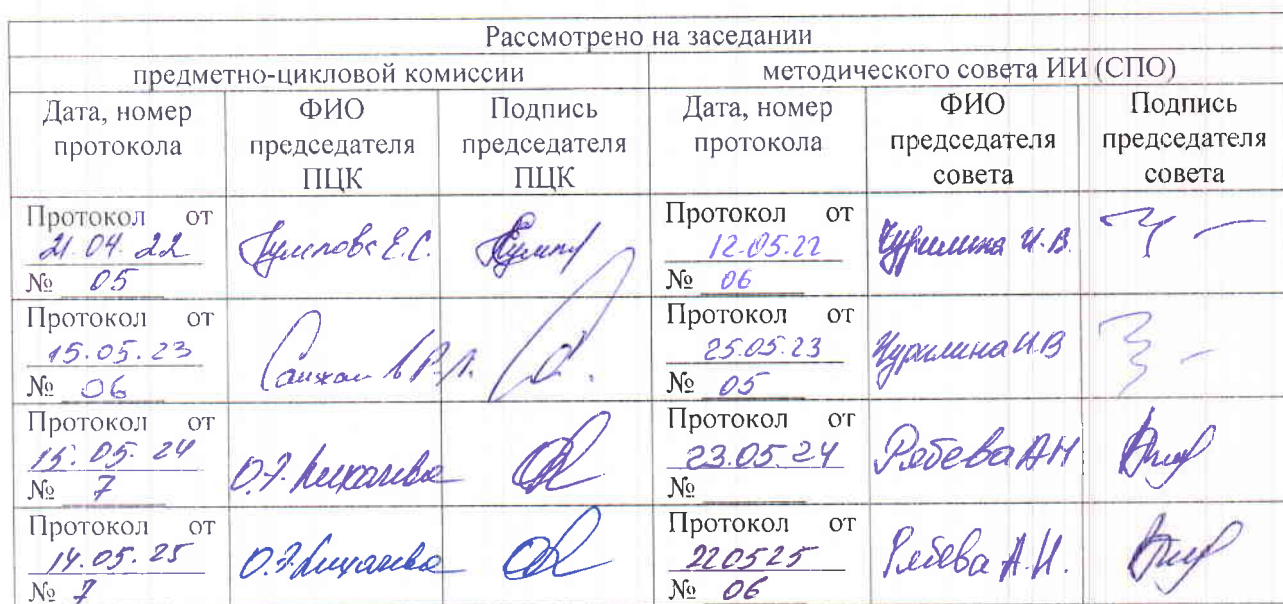 Рассмотрено на заседании
предметно-цикловой комиссии методического совета ИИ (СПО)
Дата, номер протокола ФИО председателя ПЦК Подпись председателя ПЦК Дата, номер протокола ФИО председателя совета Подпись председателя совета
Протокол от
21.04.22
№ 05
Е.С.
Протокол от
12.05.22
№ 06
Чурилина И.В.
Протокол от
15.05.23
№ 06
Протокол от
25.05.23
№ 05
Чурилина И.В
Протокол от
15.05.24
№ 7
Протокол от
23.05.24
№
Рябева АН
Протокол от
14.05.25
№ 7
Протокол от
220525
№ 06
Рябева А.Н.